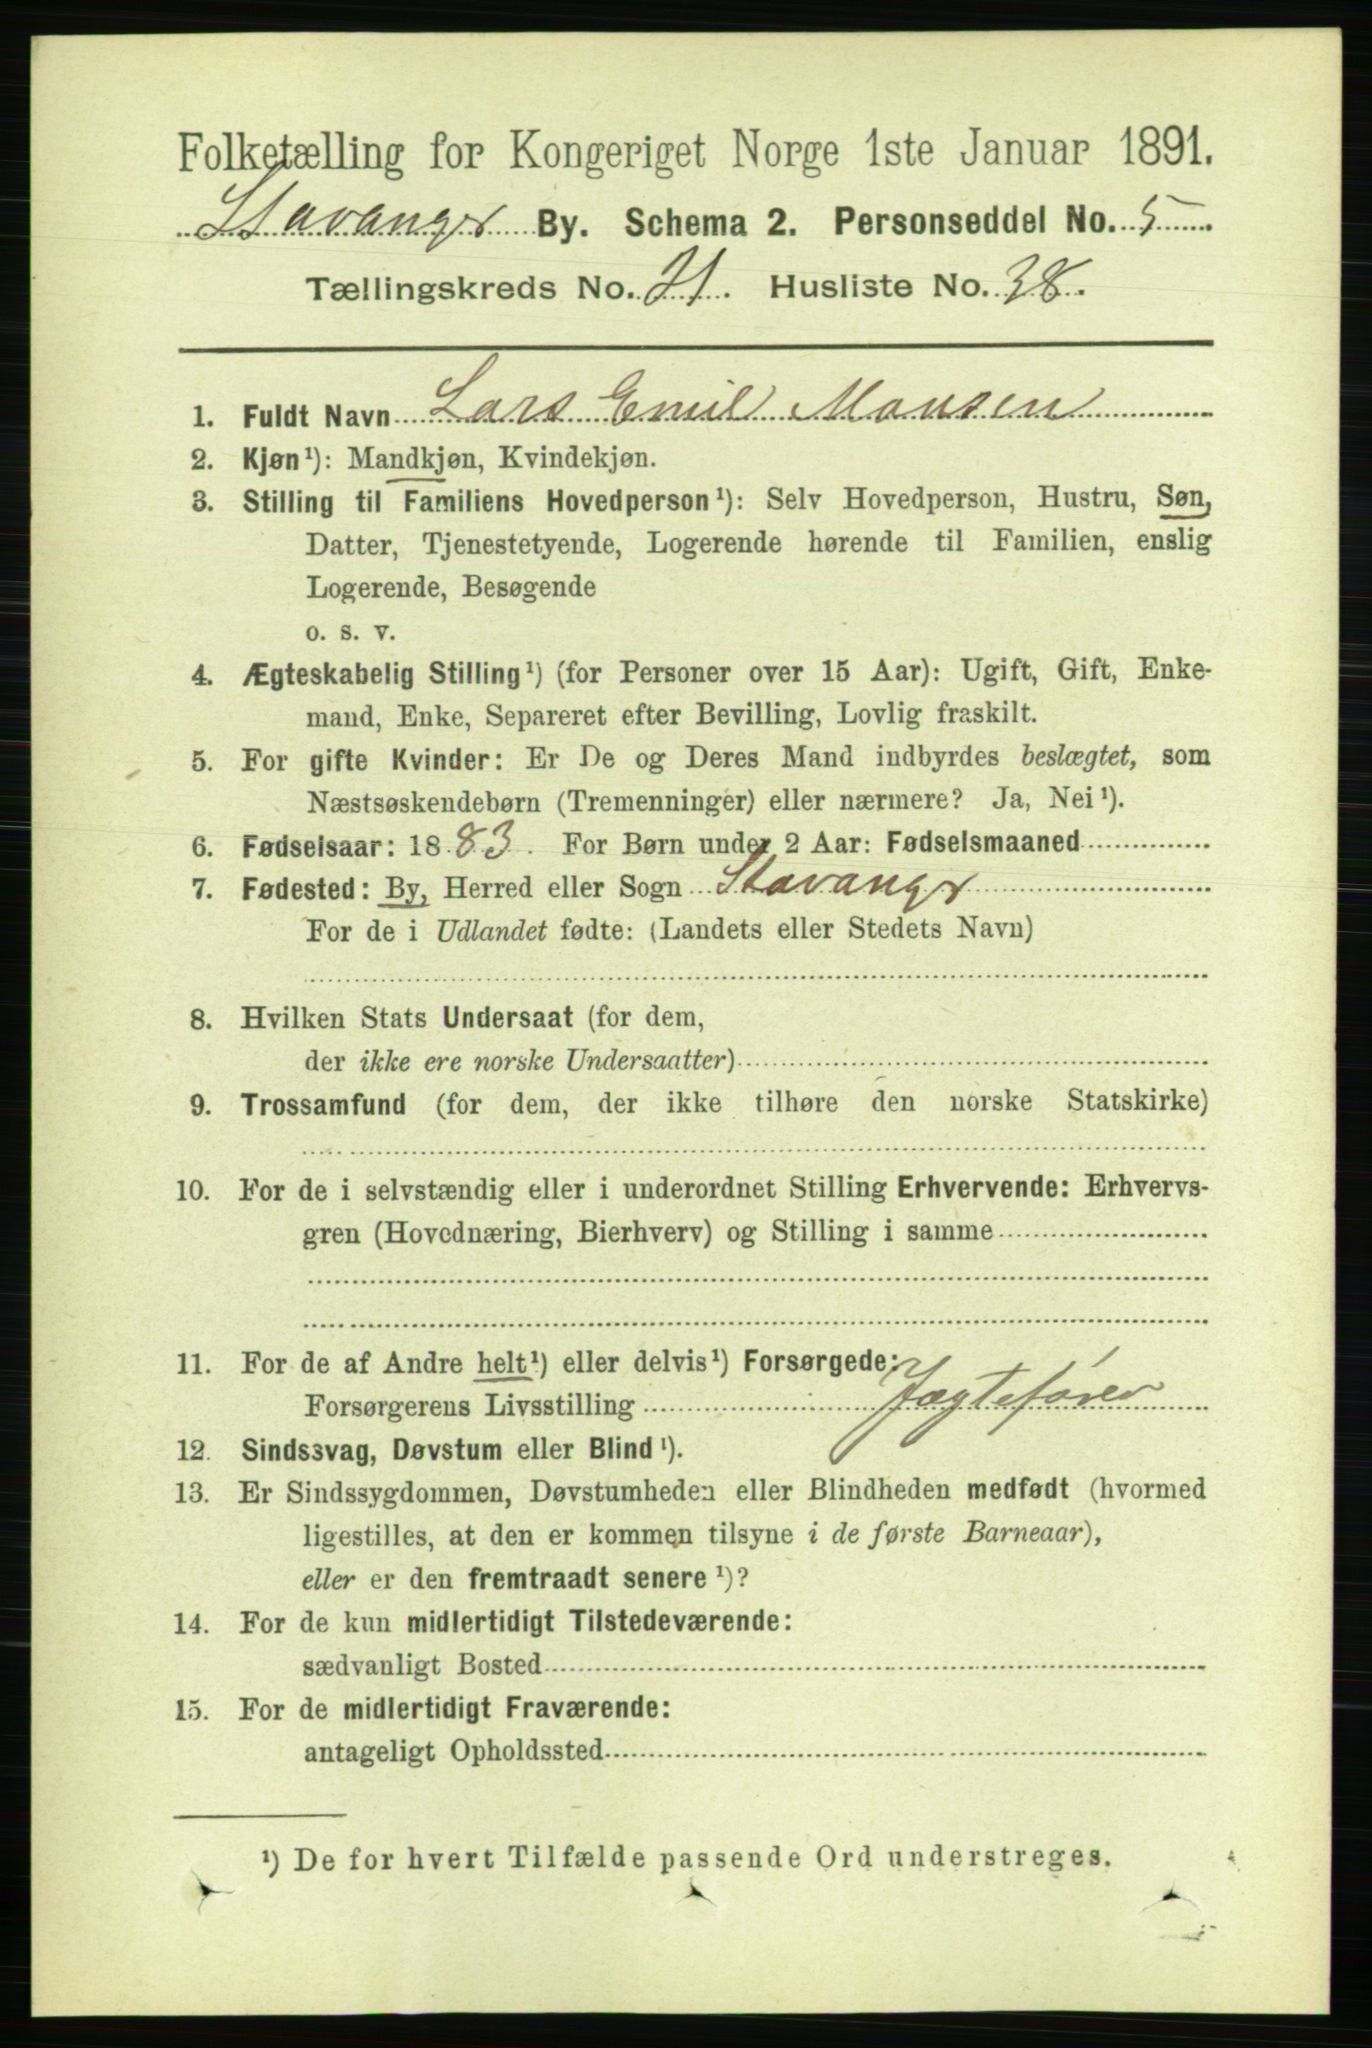 Folketælling for Kongeriget Norge 1ste Januar 1891.
Stavanger By. Schema 2. Personseddel No. 5
Tællingskreds No. 21. Husliste No. 38.
1. Fuldt Navn Lars Emil Monsen
2. Kjøn¹): Mandkjøn, Kvindekjøn.
3. Stilling til Familiens Hovedperson¹): Selv Hovedperson, Hustru, Søn,
Datter, Tjenestetyende, Logerende hørende til Familien, enslig
Logerende, Besøgende
o. s. v.
4. Ægteskabelig Stilling¹) (for Personer over 15 Aar): Ugift, Gift, Enke-
mand, Enke, Separeret efter Bevilling, Lovlig fraskilt.
5. For gifte Kvinder: Er De og Deres Mand indbyrdes beslægtet, som
Næstsøskendebørn (Tremenninger) eller nærmere? Ja, Nei¹).
6. Fødselsaar: 1883. For Børn under 2 Aar: Fødselsmaaned
7. Fødested: By, Herred eller Sogn Stavanger
For de i Udlandet fødte: (Landets eller Stedets Navn)
8. Hvilken Stats Undersaat (for dem,
der ikke ere norske Undersaatter)
9. Trossamfund (for dem, der ikke tilhøre den norske Statskirke)
10. For de i selvstændig eller i underordnet Stilling Erhvervende: Erhvervs-
gren (Hovednæring, Bierhverv) og Stilling i samme
11. For de af Andre helt¹) eller delvis¹) Forsørgede:
Forsørgerens Livsstilling Jægtefører
12. Sindssvag, Døvstum eller Blind¹).
13. Er Sindssygdommen, Døvstumheden eller Blindheden medfødt (hvormed
ligestilles, at den er kommen tilsyne i de første Barneaar),
eller er den fremtraadt senere¹)?
14. For de kun midlertidigt Tilstedeværende:
sædvanligt Bosted
15. For de midlertidigt Fraværende:
antageligt Opholdssted
¹) De for hvert Tilfælde passende Ord understreges.